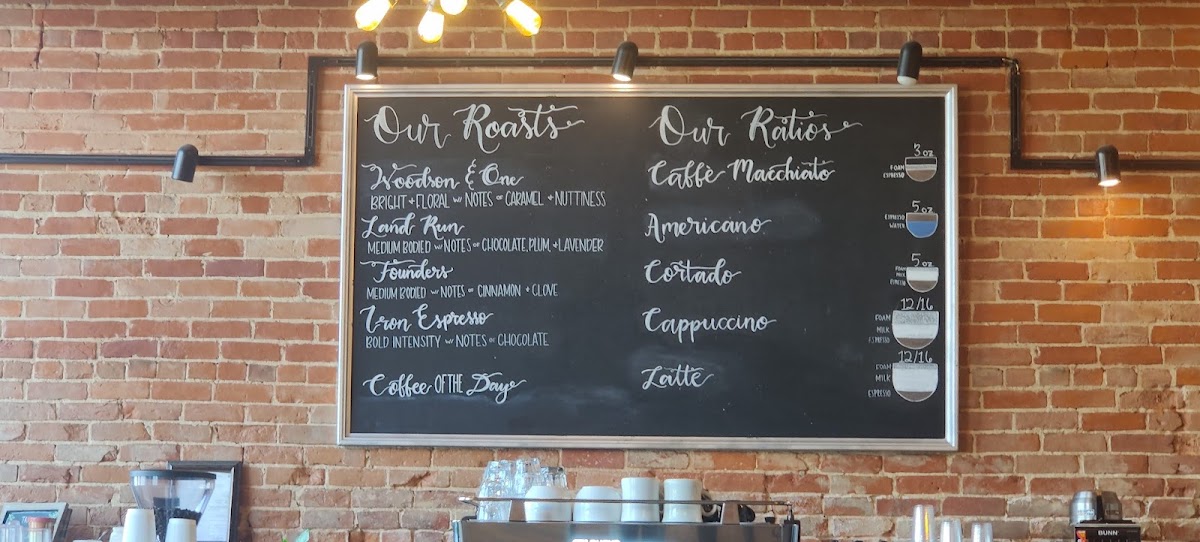 Our Roasts
Woodson & One
BRIGHT + FLORAL w/ NOTES OF CARAMEL + NUTTINESS
Land Run
MEDIUM BODIED w/ NOTES OF CHOCOLATE, PLUM, + LAVENDER
Founders
MEDIUM BODIED w/ NOTES OF CINNAMON + CLOVE
Iron Espresso
BOLD INTENSITY w/ NOTES OF CHOCOLATE
Coffee OF THE Day
Our Ratios
Caffè Macchiato
3 oz
FOAM
ESPRESSO
Americano
5 oz
ESPRESSO
WATER
Cortado
5 oz
FOAM
MILK
ESPRESSO
Cappuccino
12/16
FOAM
MILK
ESPRESSO
Latte
12/16
FOAM
MILK
ESPRESSO
BUNN